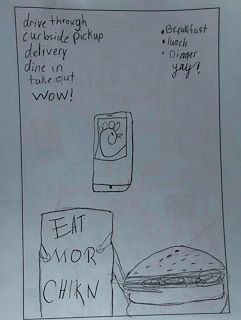 drive through
curbside pickup
delivery
dine in
take out
WOW!
• Breakfast
• lunch
• Dinner
yay!
EAT
MOR
CHIKN